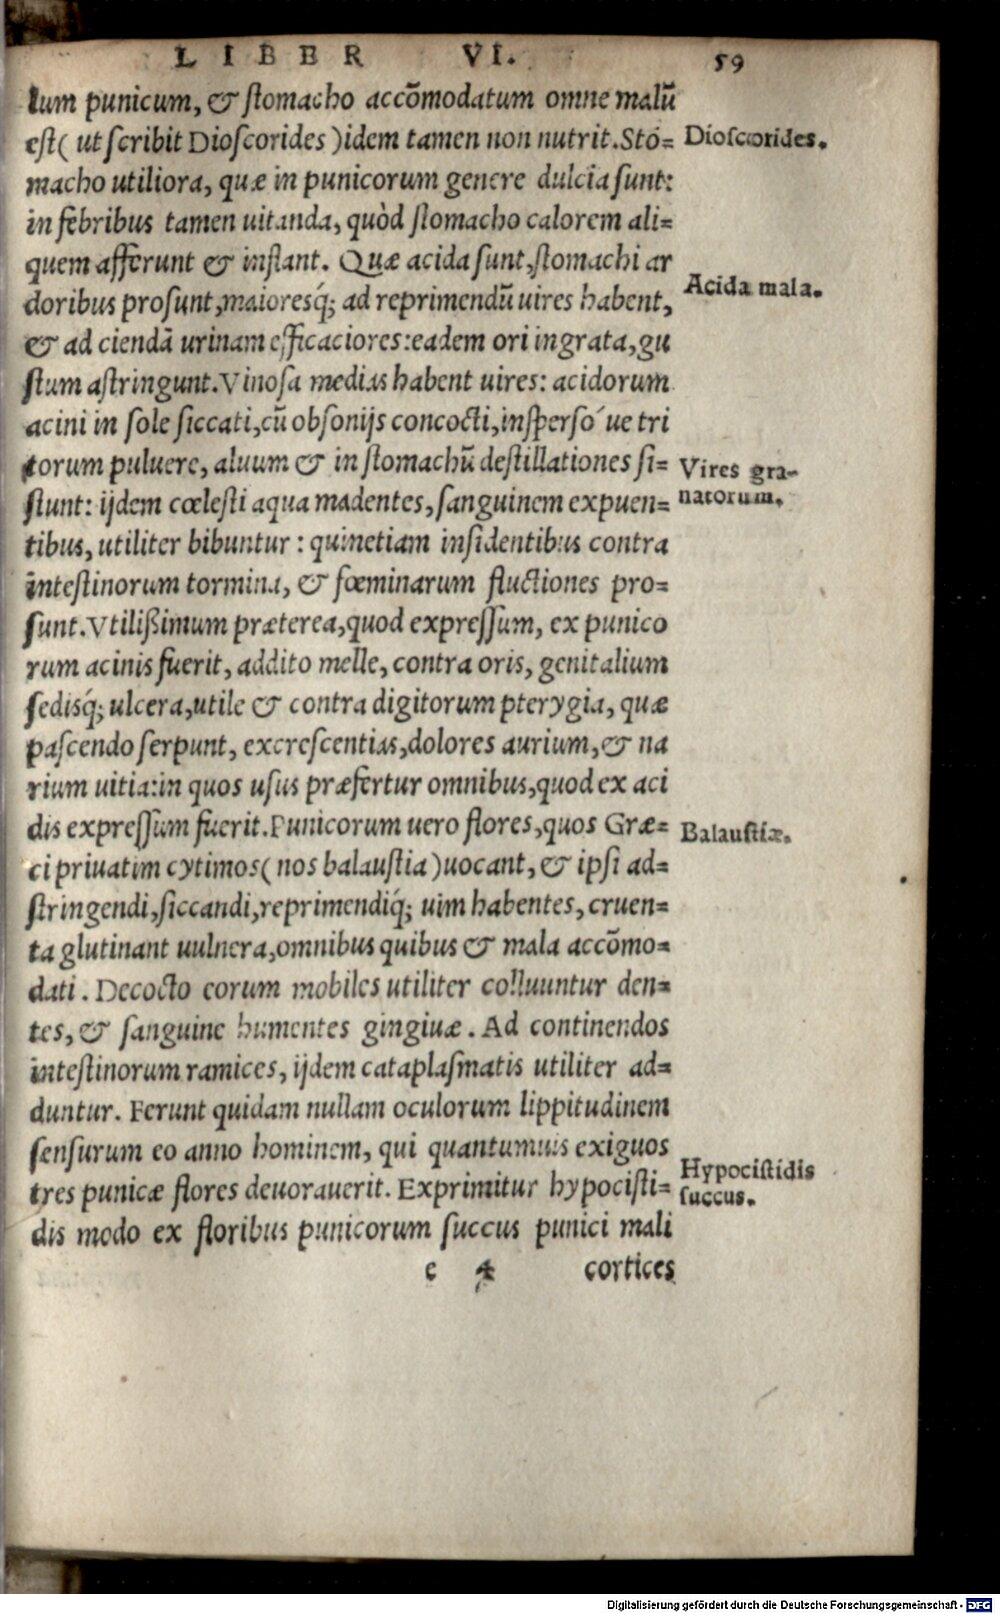 LIBER VI. 59
lum punicum, & stomacho accõmodatum omne malũ
est( ut scribit Dioscorides )idem tamen non nutrit. Sto=
Dioscorides.
macho utiliora, quæ in punicorum genere dulcia sunt:
in febribus tamen uitanda, quòd stomacho calorem ali=
quem afferunt & inflant. Quæ acida sunt, stomachi ar
Acida mala.
doribus prosunt, maioresq́; ad reprimendũ uires habent,
& ad ciendã urinam efficaciores: eadem ori ingrata, gu
stum astringunt. Vinosa medias habent uires: acidorum
acini in sole siccati, cũ obsonijs concocti, insperso´ue tri
torum puluere, aluum & in stomachũ destillationes si=
Vires gra-
natorum.
stunt: ijdem cœlesti aqua madentes, sanguinem expuen=
tibus, utiliter bibuntur : quinetiam insidentibus contra
intestinorum tormina, & fœminarum fluctiones pro=
sunt. Vtilißimum præterea, quod expressum, ex punico
rum acinis fuerit, addito melle, contra oris, genitalium
sedisq́; ulcera, utile & contra digitorum pterygia, quæ
pascendo serpunt, excrescentias, dolores aurium, & na
rium uitia: in quos usus præfertur omnibus, quod ex aci
dis expressum fuerit. Punicorum uero flores, quos Græ=
Balaustiæ.
ci priuatim cytimos( nos balaustia )uocant, & ipsi ad=
stringendi, siccandi, reprimendiq́; uim habentes, cruen=
ta glutinant uulnera, omnibus quibus & mala accõmo=
dati. Decocto eorum mobiles utiliter colluuntur den=
tes, & sanguine humentes gingiuæ. Ad continendos
intestinorum ramices, ijdem cataplasmatis utiliter ad=
duntur. Ferunt quidam nullam oculorum lippitudinem
sensurum eo anno hominem, qui quantumuis exiguos
tres punicæ flores deuorauerit. Exprimitur hypocisti=
Hypocistidis
succus.
dis modo ex floribus punicorum succus punici mali
e 4 cortices
Digitalisierung gefördert durch die Deutsche Forschungsgemeinschaft - DFG